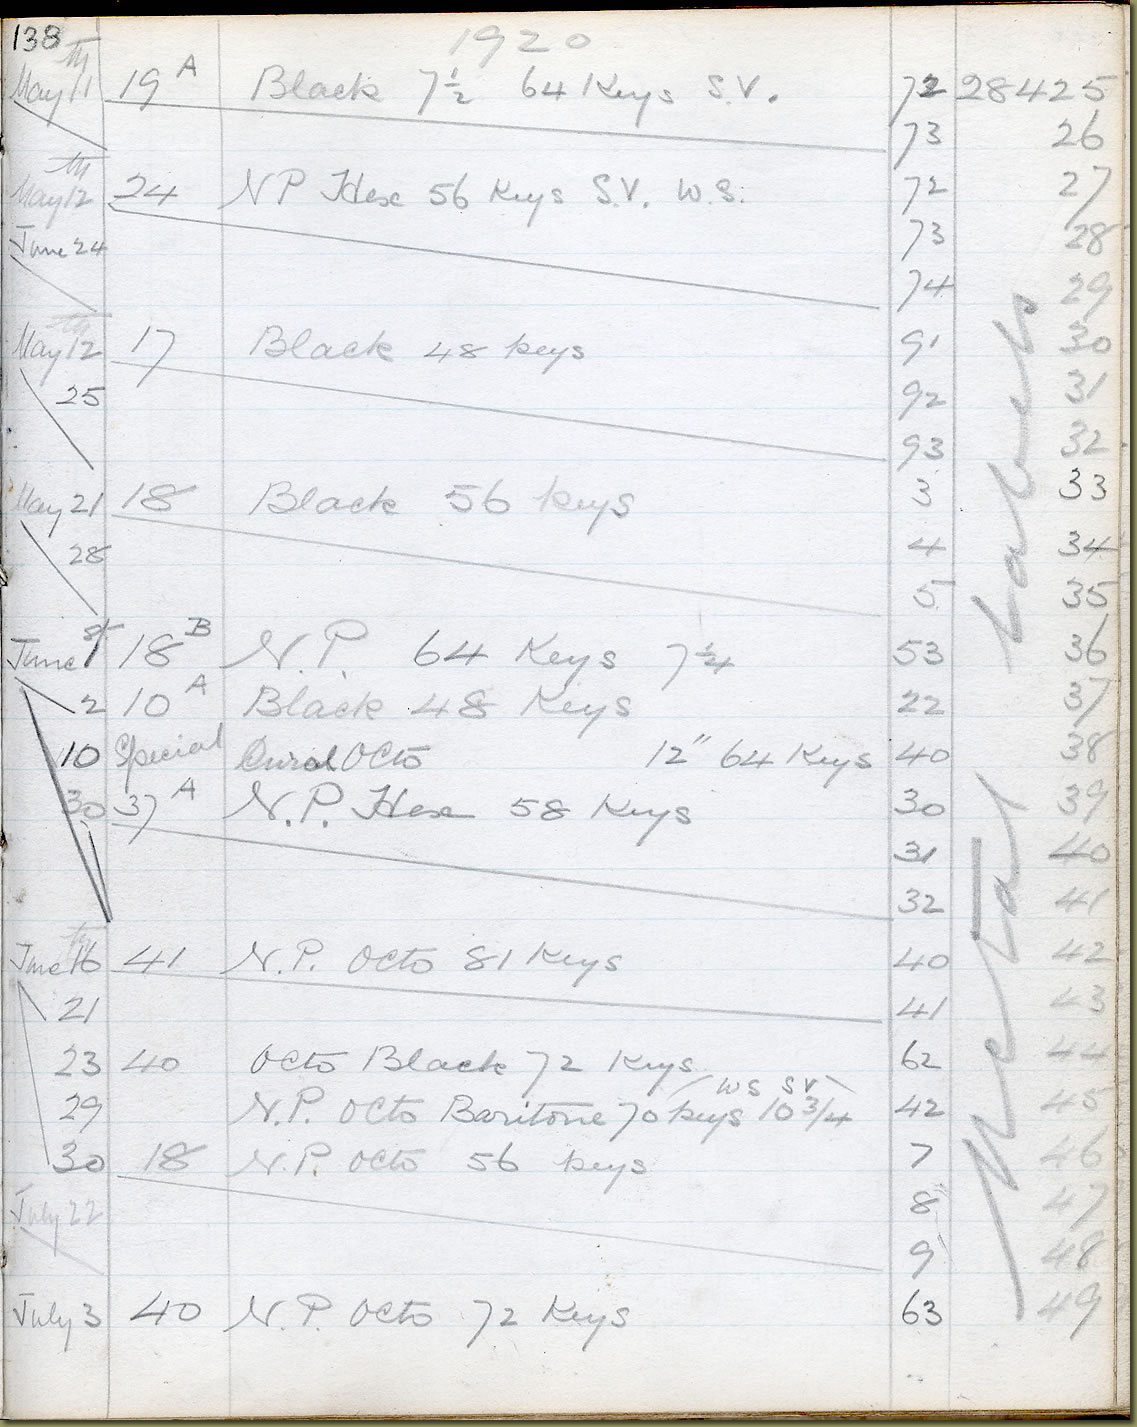 138 1920
May 11th 19A Black 7½ 64 Keys S.V. 72 28425
73 26
May 12th 24 NP Hex 56 Keys S.V. W.S. 72 27
June 24 73 28
74 29
May 12th 17 Black 48 keys 91 30
25 92 31
93 32
May 21 18 Black 56 keys 3 33
28 4 34
5 35
June 1st 18B N.P. 64 Keys 7¼ 53 36
2 10A Black 48 Keys 22 37
10 Special Octo 12" 64 Keys 40 38
30 37A N.P. Hex 58 Keys 30 39
31 40
32 41
June 16th 41 N.P. Octo 81 Keys 40 42
21 41 43
23 40 Octo Black 72 Keys 62 44
WS SV
29 N.P. Octo Baritone 70 keys 10 3/4 42 45
30 18 N.P. Octo 56 keys 7 46
July 22 8 47
9 48
July 3 40 N.P. Octo 72 Keys 63 49
Metal